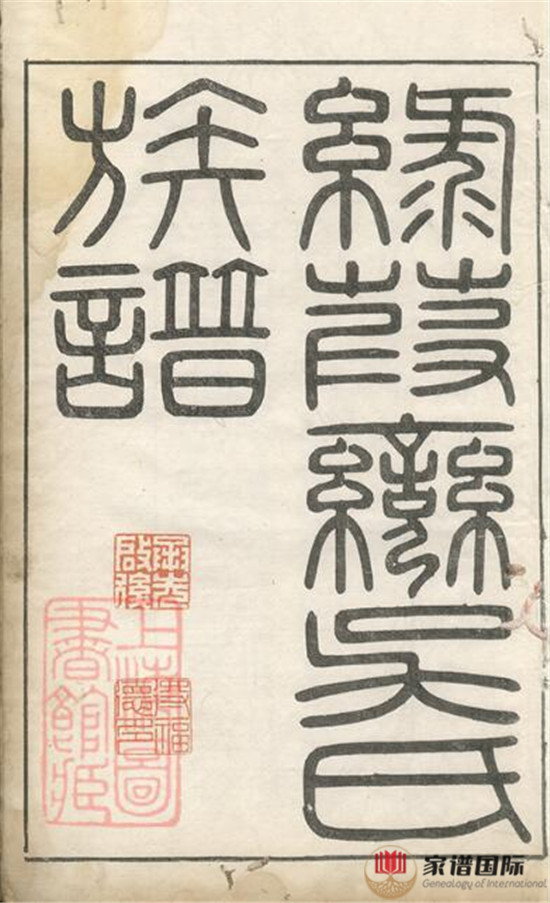 綠葭彎吳氏
族譜
上海圖
書館藏
家谱国际
Genealogy of International